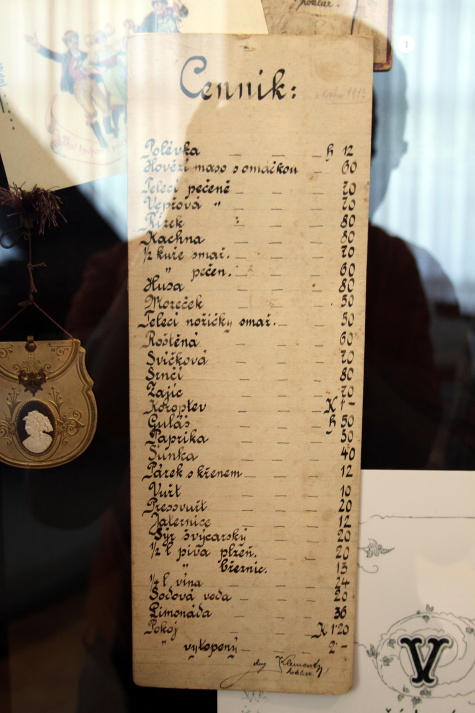 Cenník:
Polévka h 12
Hovězí maso s omáčkou 60
Telecí pečeně 70
Vepřová " 70
Řízek 80
Kachna 80
½ kuře smaž. 70
" pečen. 60
Husa 80
Mozeček 50
Telecí nožičky smaž. 50
Roštěná 60
Svíčková 70
Srnčí 80
Zajíc 70
Koroptev K 1 -
Guláš h 50
Paprika 50
Šunka 40
Párek s křenem 12
Vuřt 10
Pressvuřt 20
Jaternice 12
Sýr švýcarský 20
½ l piva plzeň. 20
" březnic. 15
½ l vína 24
Sodová voda 20
Limonáda 36
Pokoj K 1·20
" vytopený 2 -
V